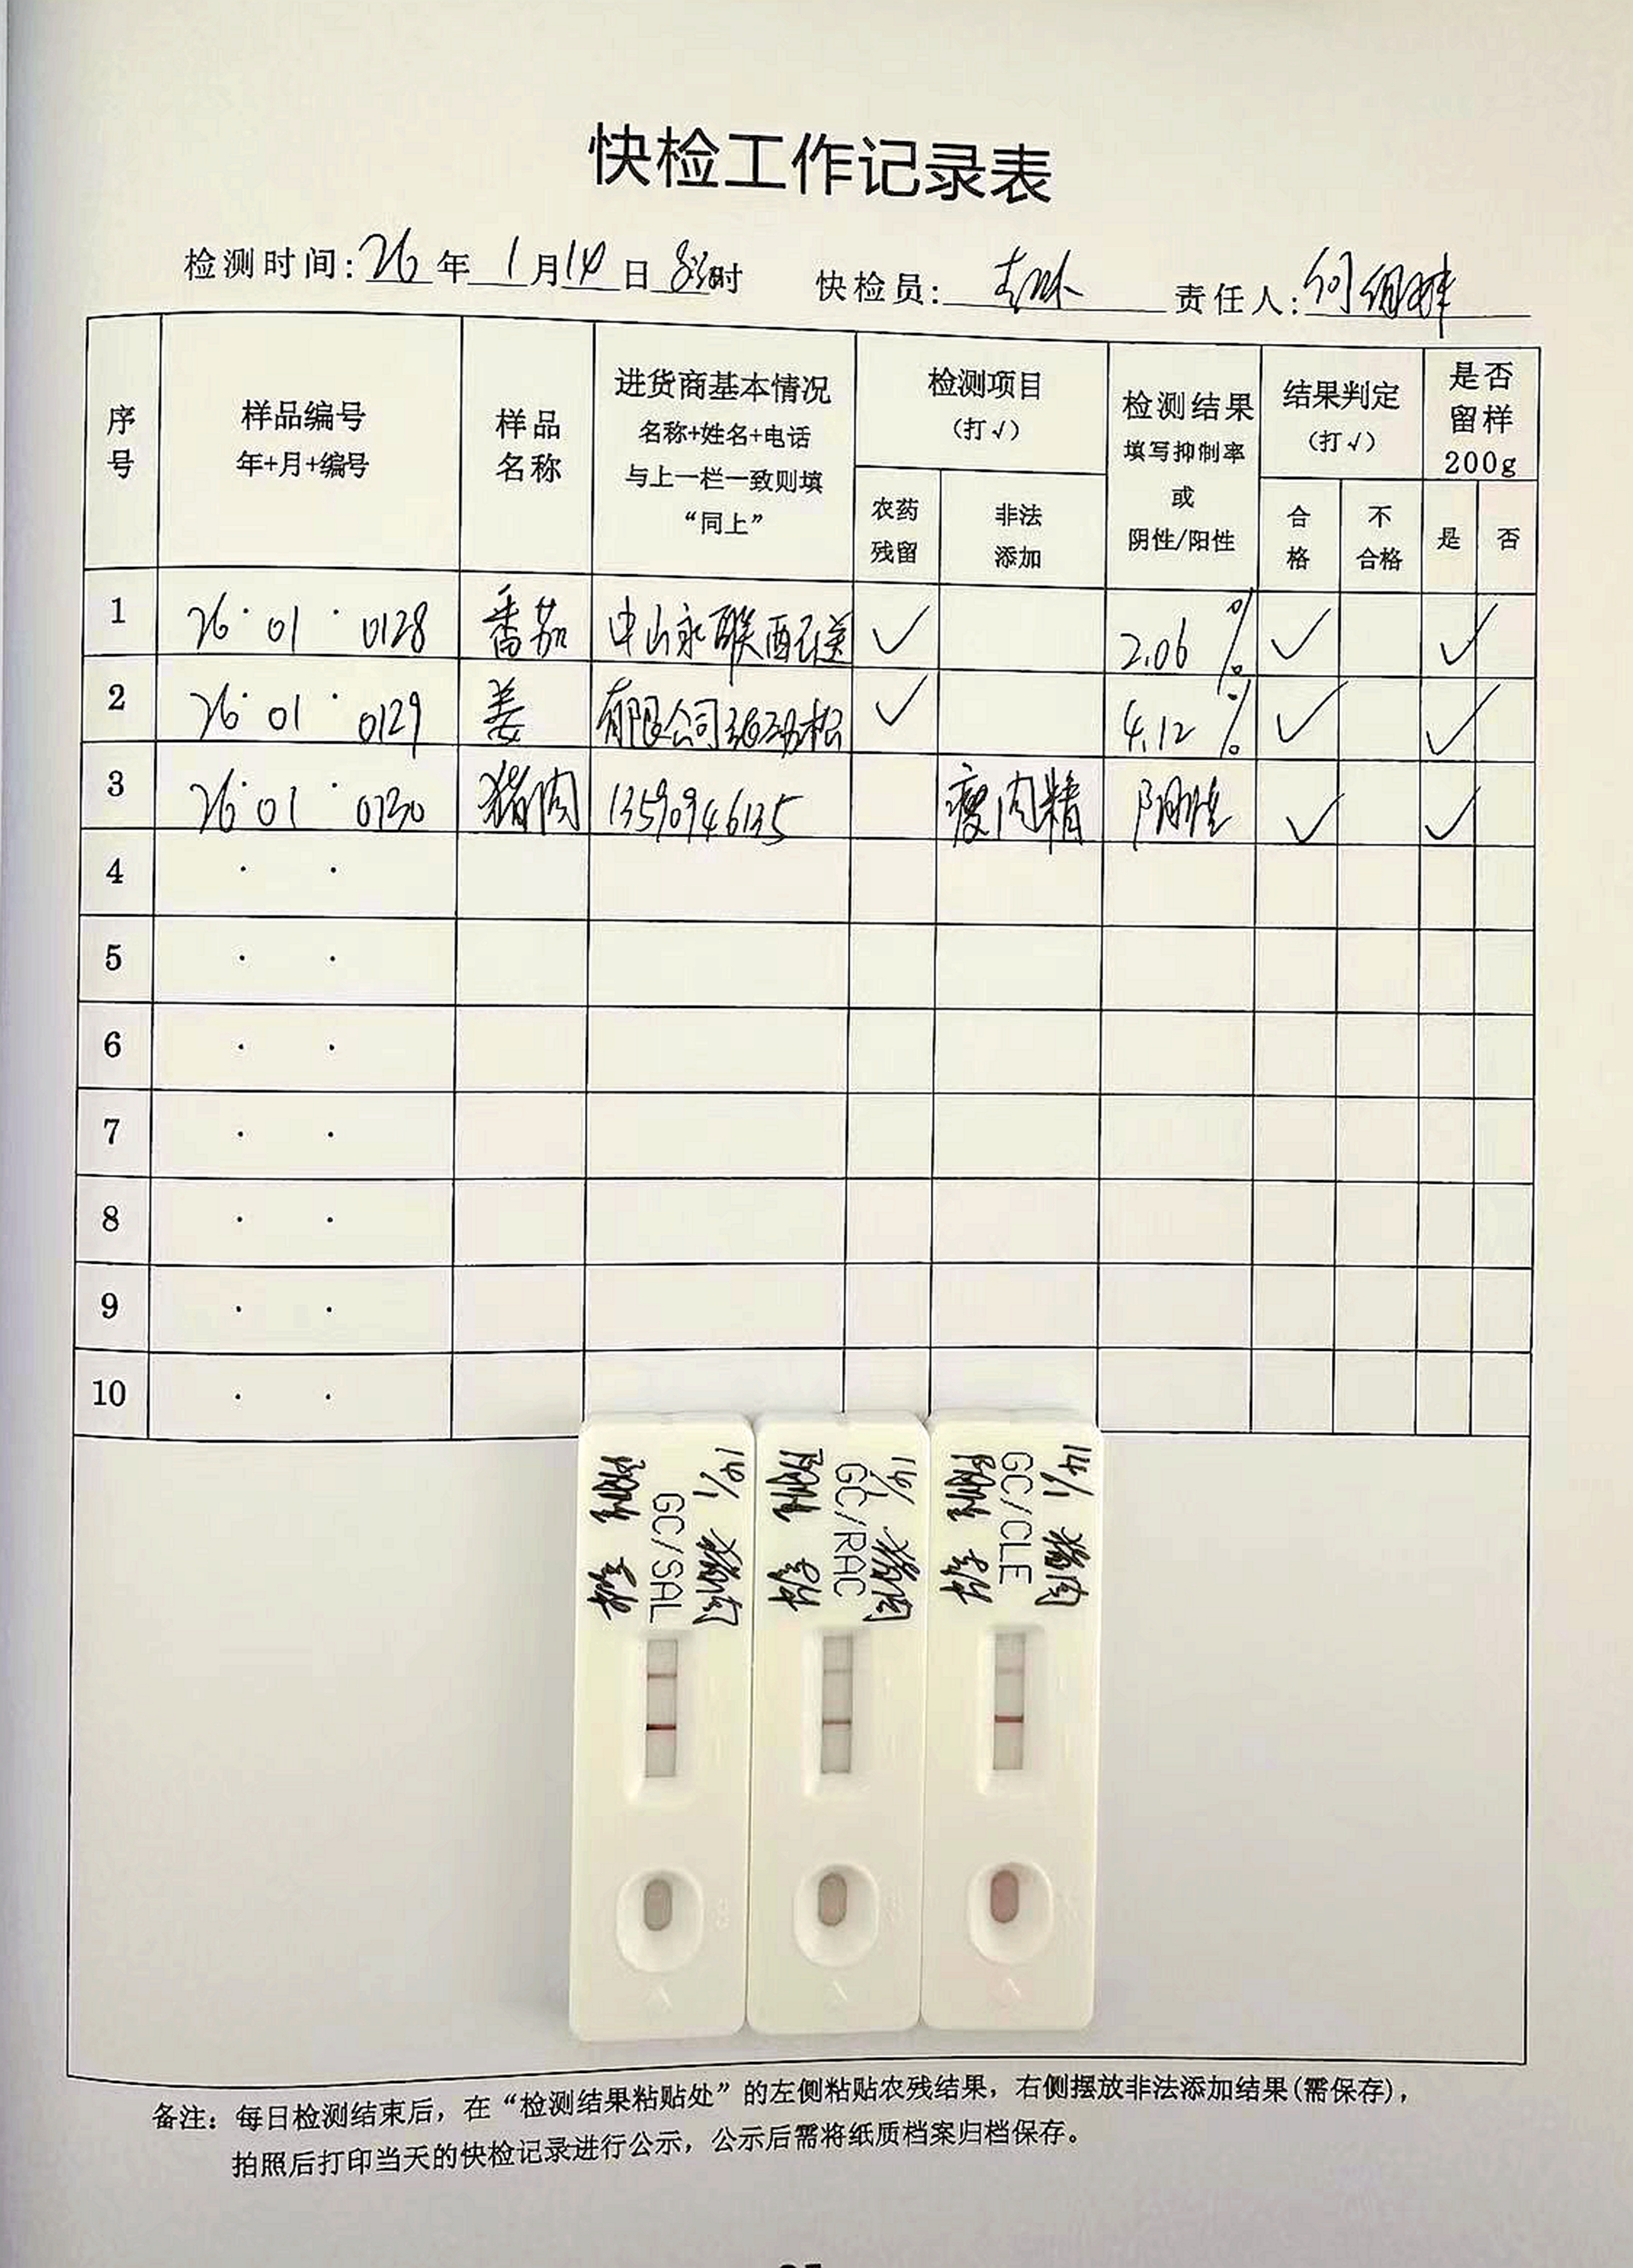 快检工作记录表
检测时间: 26 年 1 月 14 日 8:30时 快检员: 责任人: 何
序号 样品编号 年+月+编号 样品名称 进货商基本情况 名称+姓名+电话 与上一栏一致则填“同上” 检测项目 (打√) 农药残留 非法添加 检测结果 填写抑制率 或 阴性/阳性 结果判定 (打√) 合格 不合格 是否留样 200g 是 否
1 26·01·0128 番茄 中山永联配送 ✓ 2.06 % ✓ ✓
2 26·01·0129 姜 有限公司 劲松 ✓ 4.12 % ✓ ✓
3 26·01·0130 猪肉 13590946135 瘦肉精 阴性 ✓ ✓
4 · ·
5 · ·
6 · ·
7 · ·
8 · ·
9 · ·
10 · ·
14/1 猪肉
GC/SAL
阴性
14/1 猪肉
GC/RAC
阴性
14/1 猪肉
GC/CLE
阴性
备注: 每日检测结束后，在“检测结果粘贴处”的左侧粘贴农残结果，右侧摆放非法添加结果(需保存)，
拍照后打印当天的快检记录进行公示，公示后需将纸质档案归档保存。